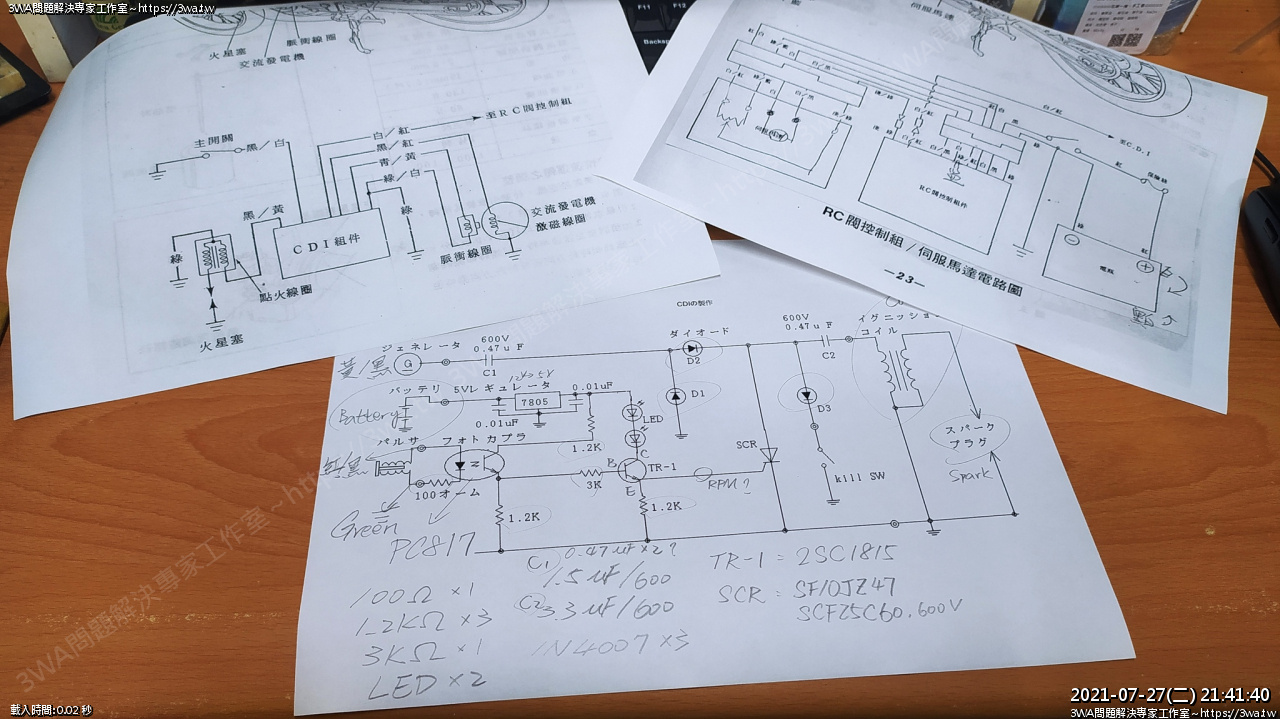 3WA問題解決專家工作室~https://3wa.tw
F11
F12
Backsp
火星塞
脈衝線圈
交流發電機
主開關
黑/白
白/紅
至RC閥控制組
黑/紅
青/黃
綠/白
黑/黃
綠
CDI組件
綠
交流發電機
激磁線圈
脈衝線圈
點火線圈
火星塞
伺服馬達
白/紅
至C.D.I
保險絲
RC閥控制組件
綠
紅
電瓶
RC閥控制組/伺服馬達電路圖
-23-
CDIの製作
ジェネレータ
600V
0.47uF
G
C1
黃/黑
ダイオード
D2
600V
0.47uF
C2
イグニッション
コイル
バッテリ
5Vレギュレータ
12V→5V
7805
0.01uF
0.01uF
Battery
LED
D1
D3
パルサ
フォトカプラ
1.2K
紅/黑
100オーム
3K
B
C
E
TR-1
RPM?
SCR
kill SW
スパーク
プラグ
Spark
Green
1.2K
1.2K
PC817
100Ω ×1
1.2KΩ ×3
3KΩ ×1
LED ×2
C1 0.47uF×2?
1.5uF/600
C2 3.3uF/600
1N4007×3
TR-1 = 2SC1815
SCR = SF10JZ47
SCF25C60.600V
3WA問題解決專家工作室~https://3wa.tw
載入時間:0.02 秒
2021-07-27(二) 21:41:40
3WA問題解決專家工作室~https://3wa.tw